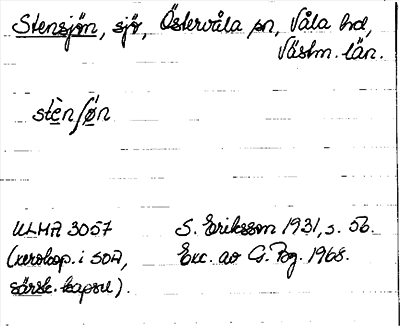 Stensjön, sjö, Östervåla sn, Våla hd,
Västm. län.
stè̱nʃǿ̱n
ULMA 3057 S. Eriksson 1931, s. 56.
(xerokop. i SOA, Exc. av G. Pog. 1968.
särsk. kapsel).